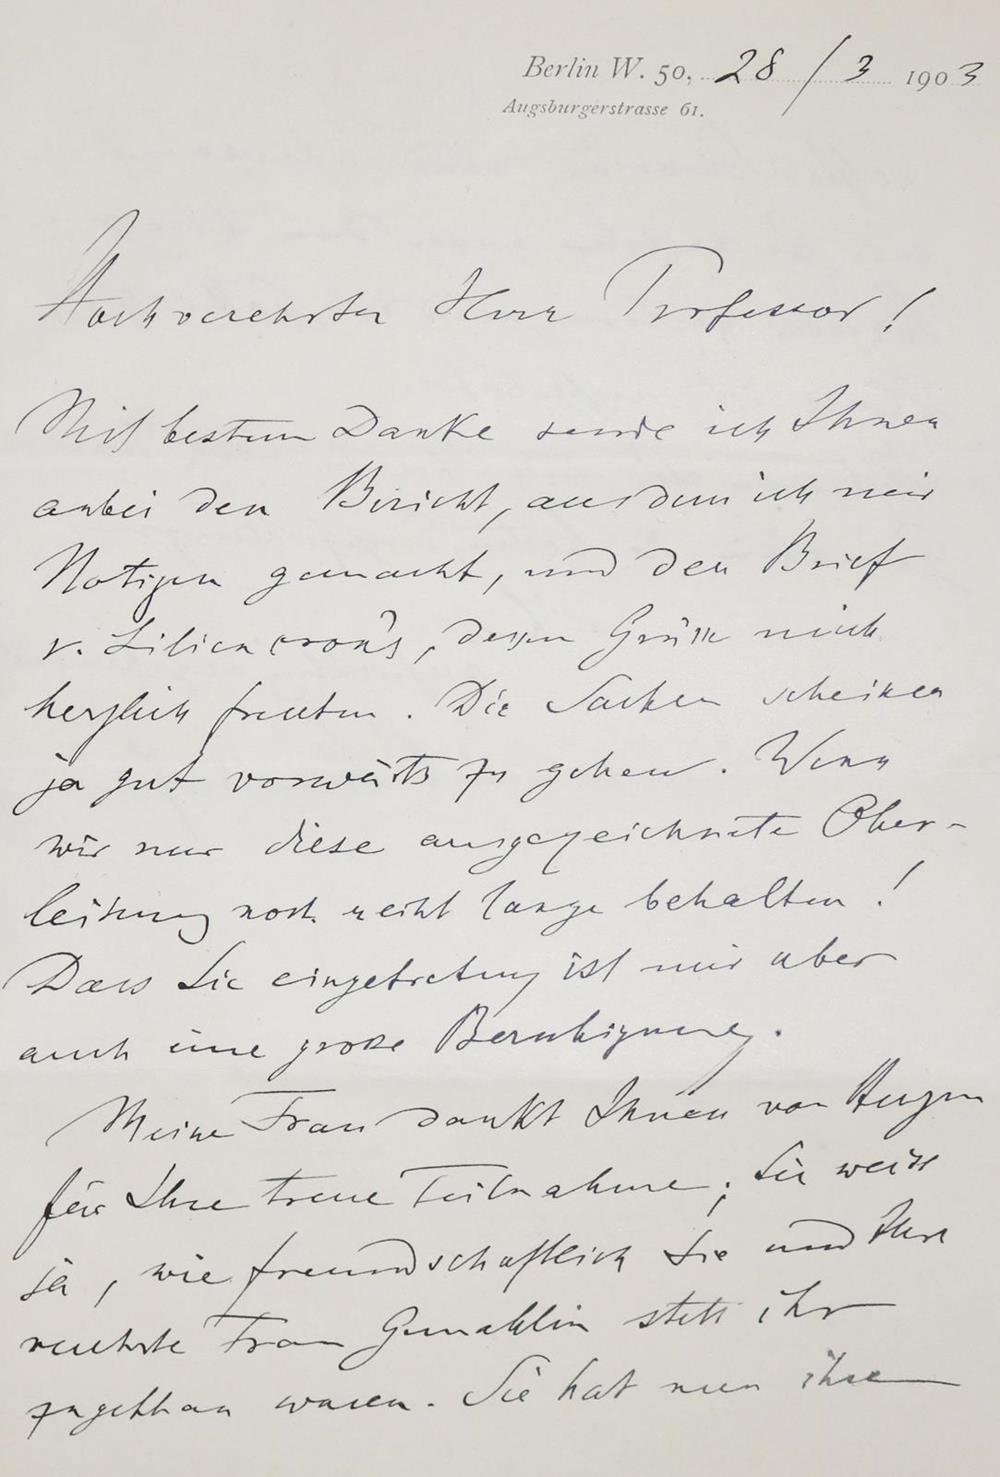 Berlin W. 50, 28/3 1903
Augsburgerstrasse 61.
Hochverehrter Herr Professor!
Mit bestem Danke sende ich Ihnen
anbei den Bericht, aus dem ich mir
Notizen gemacht, und den Brief
v. Liliencron's, dessen Grüsse mich
herzlich freuten. Die Sachen scheinen
ja gut vorwärts zu gehen. Wenn
wir nur diese ausgezeichnete Ober-
leitung noch recht lange behalten!
Dass Sie eingetreten ist mir aber
auch eine grosse Beruhigung.
Meine Frau dankt Ihnen von Herzen
für Ihre treue Teilnahme; Sie weiss
ja, wie freundschaftlich Sie und Ihre
verehrte Frau Gemahlin stets ihr
zugethan waren. Sie hat nun ihre